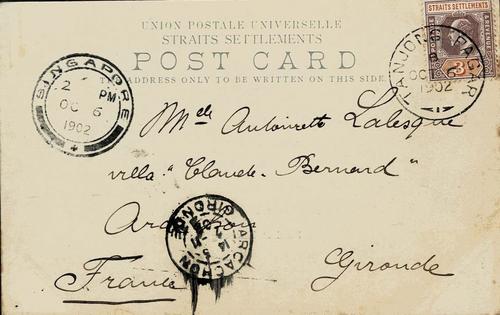 UNION POSTALE UNIVERSELLE
STRAITS SETTLEMENTS
POST CARD
THE ADDRESS ONLY TO BE WRITTEN ON THIS SIDE
STRAITS SETTLEMENTS
SINGAPORE
2 PM
OC 6
1902
TANJONG PAGAR
OC 6
1902
1
Melle Antoinette Lalesque
villa "Claude-Bernard"
ARCACHON
GIRONDE
France
Gironde